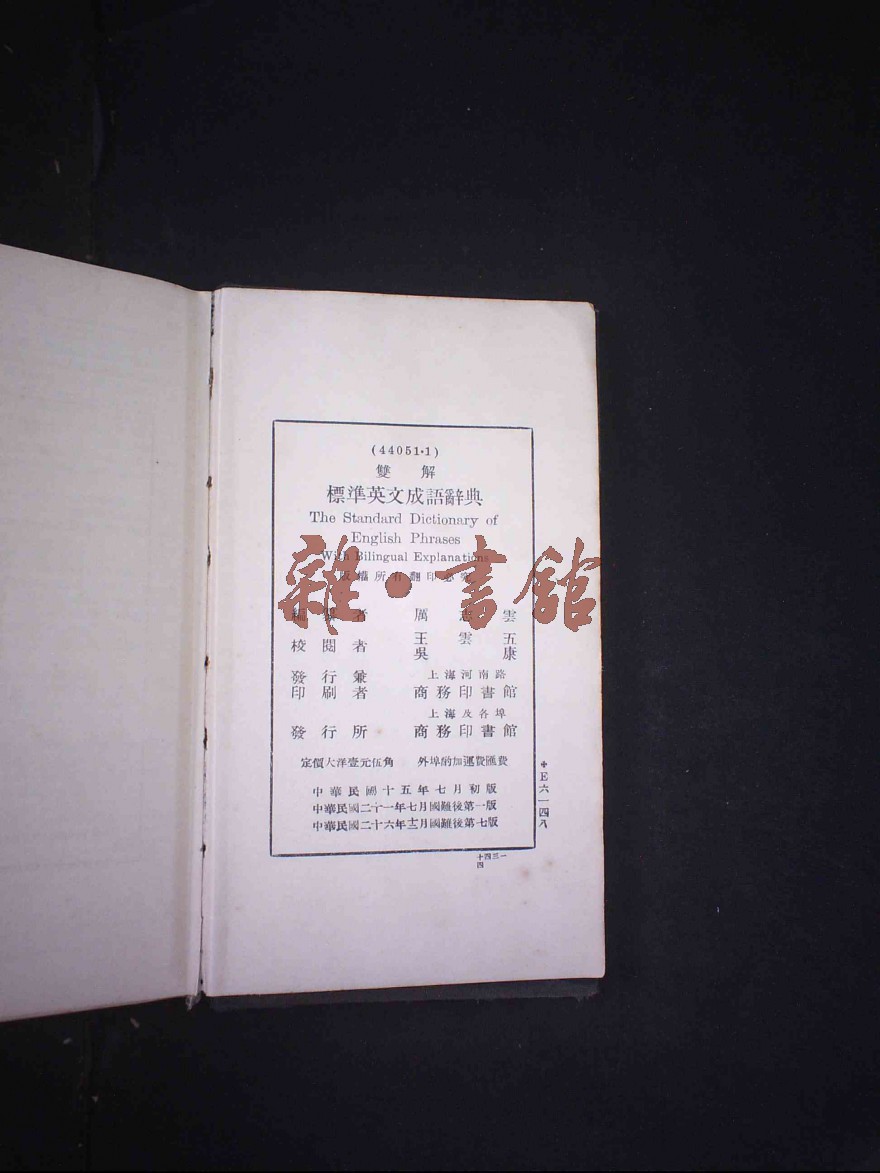 (44051·1)
雙解
標準英文成語辭典
The Standard Dictionary of
English Phrases
With Bilingual Explanations
版權所有翻印必究
編譯者 厲志雲
校閱者 王雲五
吳康
發行兼 上海河南路
印刷者 商務印書館
上海及各埠
發行所 商務印書館
定價大洋壹元伍角 外埠酌加運費匯費
中華民國十五年七月初版
中華民國二十一年七月國難後第一版
中華民國二十六年十二月國難後第七版
＊E六一四八
雜·書館